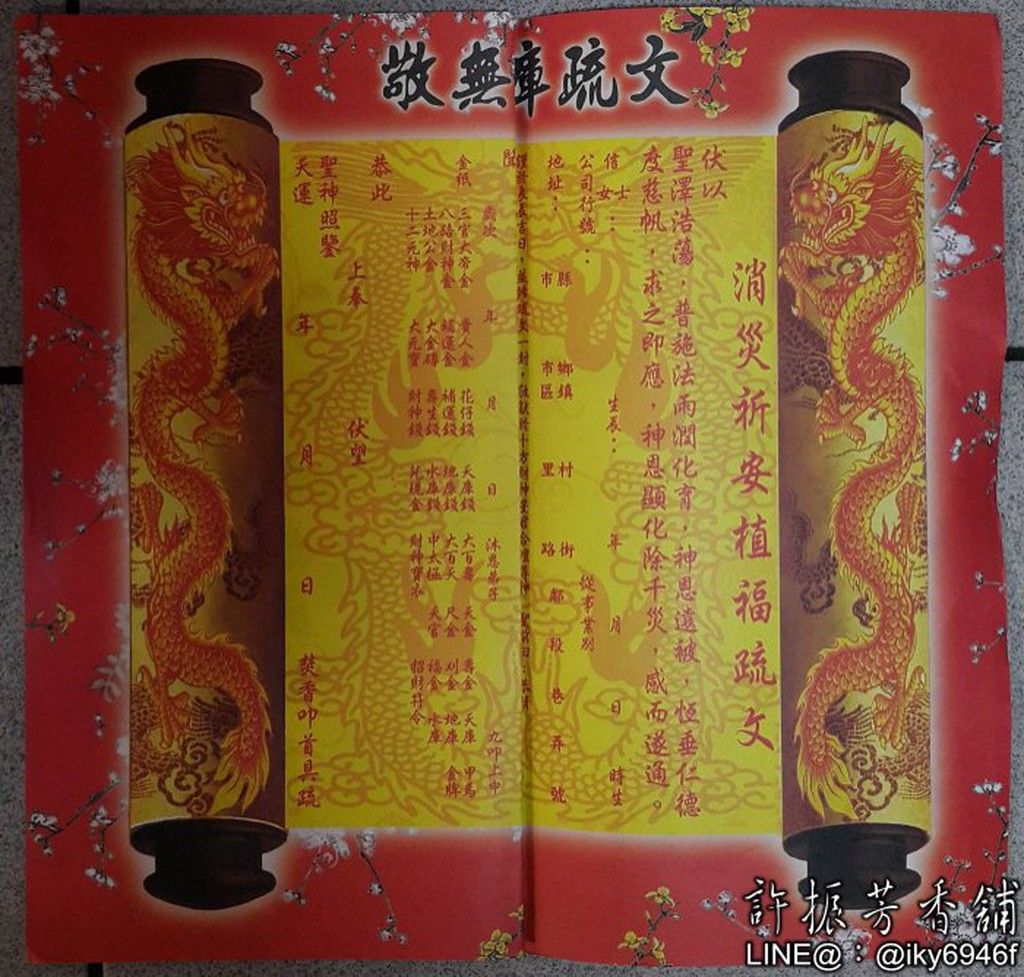 文疏庫無敬
消災祈安植福疏文
伏以
聖澤浩蕩，普施法雨潤化育，神恩遠被，恆垂仁德
度慈帆，求之即應，神恩顯化除千災，感而遂通。
信士女： 生辰： 年 月 日 時生
公司行號： 從事業別
地址： 縣市 鄉鎮市區 村里 街路 鄰 段 巷 弄 號
歲次 年 月 日 沐恩弟子 九叩上申
金紙 三官大帝金 貴人金 花仔錢 天庫錢 大百壽 天金 壽金 天庫 甲馬
八路財神金 補運金 補運錢 地庫錢 大百天 尺金 刈金 地庫 金牌
土地公金 大金磚 壽生錢 水庫錢 中太極 天官 福金 水庫
十二元神 大元寶 財神錢 財神寶衣 招財符令
恭此 上奉 伏望
聖神照鑒
天運 年 月 日 焚香叩首具疏
許振芳香舖
LINE@：@iky6946f